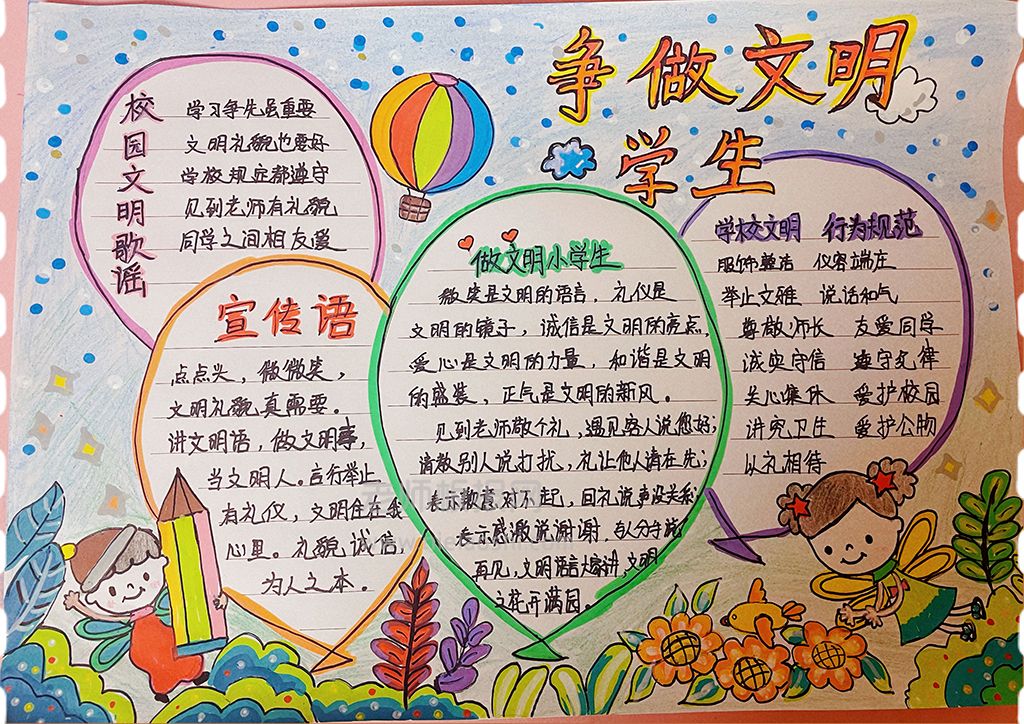 争做文明
学生
校园文明歌谣
学习争先虽重要
文明礼貌也要好
学校规范都遵守
见到老师有礼貌
同学之间相友爱
宣传语
点点头，微微笑，
文明礼貌真需要。
讲文明语，做文明事，
当文明人。言行举止
有礼仪，文明住在我
心里。礼貌诚信，
为人之本。
做文明小学生
微笑是文明的语言，礼仪是
文明的镜子，诚信是文明的亮点，
爱心是文明的力量，和谐是文明
的盛装，正气是文明的新风。
见到老师敬个礼，遇见客人说您好；
请教别人说打扰，礼让他人请在先；
表示歉意对不起，回礼说声没关系
表示感激说谢谢，与人分手说
再见，文明语言熔讲，文明
之花开满园。
学校文明 行为规范
服饰整洁 仪容端庄
举止文雅 说话和气
尊敬师长 友爱同学
诚实守信 遵守纪律
关心集体 爱护校园
讲究卫生 爱护公物
以礼相待